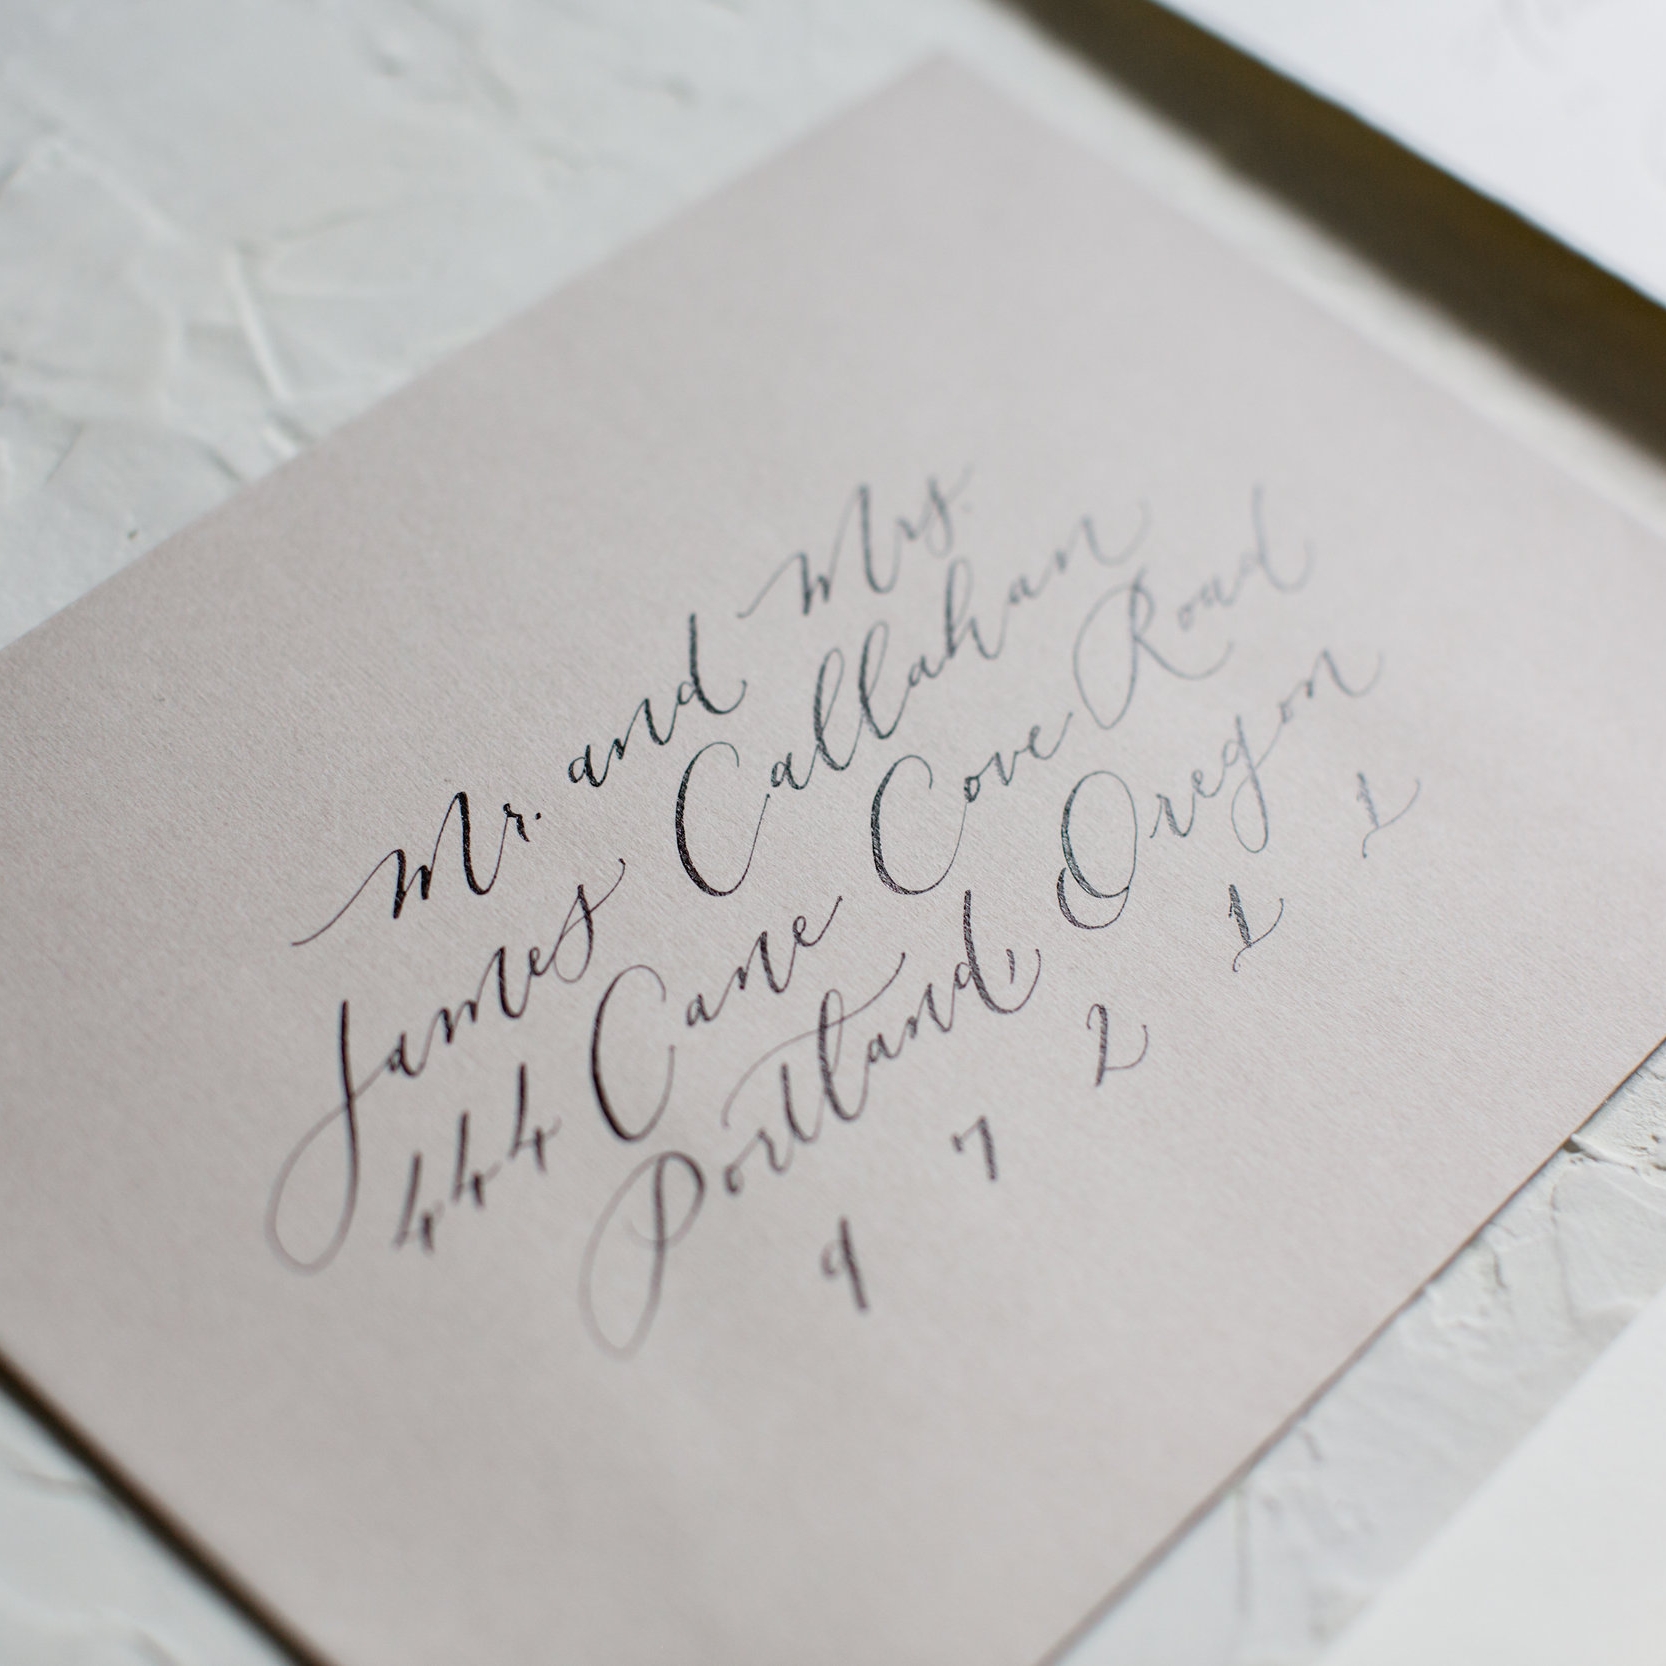 Mr. and Mrs.
James Callahan
444 Cane Cove Road
Portland, Oregon
97211